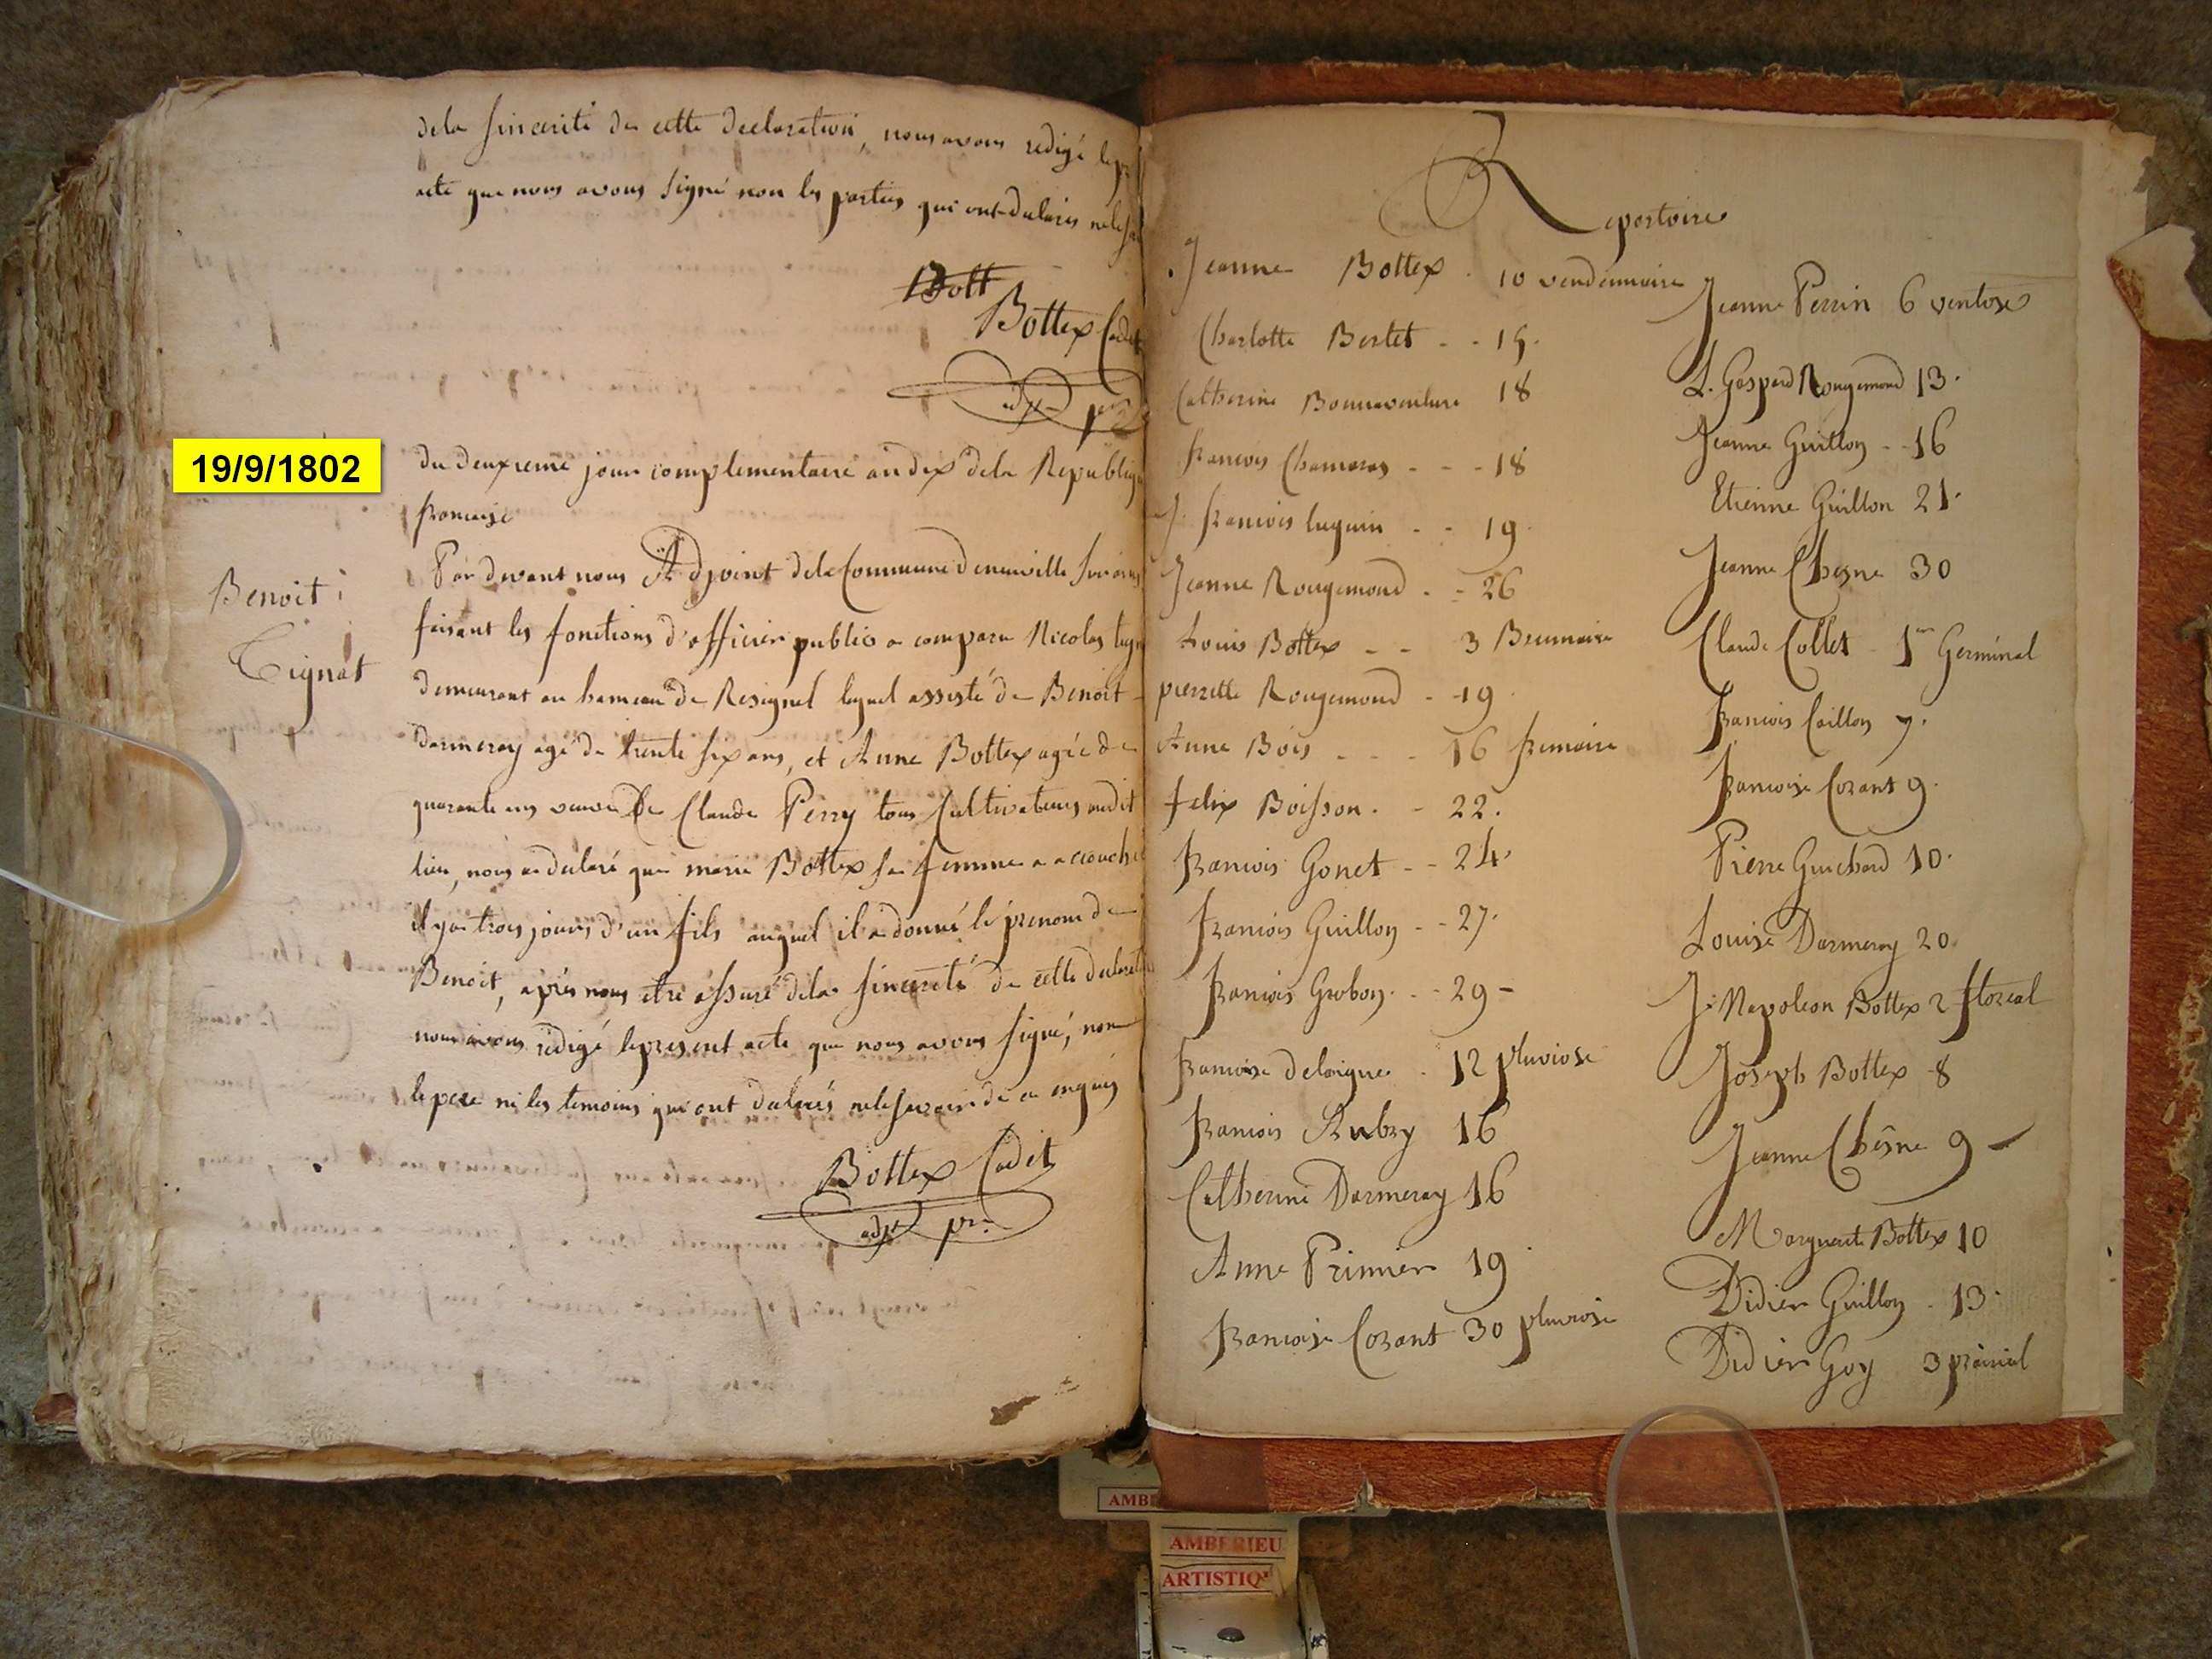 dela sincerité de cette declaration, nous avons redigé le
acte que nous avons signé non les parties qui ont declarés
Bott
Bottex Cadet
adjt
19/9/1802
du deuxieme jour complementaire an dix dela Republique
francaise
Benoit
Tignat
Par devant nous Adjoint dela Commune deneuville sur
faisant les fonctions d'officier public a comparu Nicolas
demeurant au hameau de Resignel lequel assisté de Benoit
Darmeray agé de trente six ans, et Anne Bottex agée de
quarante ans veuve De Claude Perry tous Cultivateurs audit
lieu, nous a declaré que marie Bottex sa femme a accouché
il ya trois jours d'un fils auquel il a donné le prenom de
Benoit, après nous etre assuré dela sincerité de cette
nous avons redigé lepresent acte que nous avons signé, non
lepere ni les temoins qui ont declarés nelesavoir de ce enquis
Bottex Cadet
adjt pr.
Repertoire
Jeanne Bottex 10 vendemiaire
Charlotte Bertet - - 15.
Catherine Bonnaventure 18
francois Chamaras - - - 18
J. francois luguin - - 19
Jeanne Rougemond - - 26
Louis Bottex - - 3 Brumaire
pierrette Rougemond - 19
Anne Bois - - - 16 frimaire
felix Boisson. - 22.
francois Gonet - - 24.
francois Guillon - - 27.
francois Grobon - - 29 -
francoise delaigue - 12 pluviose
francois Aubry 16
Catherine Darmeray 16
Anne Primier 19
francoise Cozant 30 pluviose
Jeanne Perrin 6 ventose
L. Gaspard Rougemond 13.
Jeanne Guillon - - 16
Etienne Guillon 21.
Jeanne Chesne 30
Claude Collet - 1er Germinal
francois Caillon 7.
francoise Cozant 9.
Pierre Guichard 10.
Louise Darmeray 20.
J. Napoleon Bottex 2 floréal
Joseph Bottex 8
Jeanne Chêsne 9 -
Marguerite Bottex 10
Didier Guillon - 13.
Didier Goy 3 prairial
AMBERIEU
ARTISTIQ